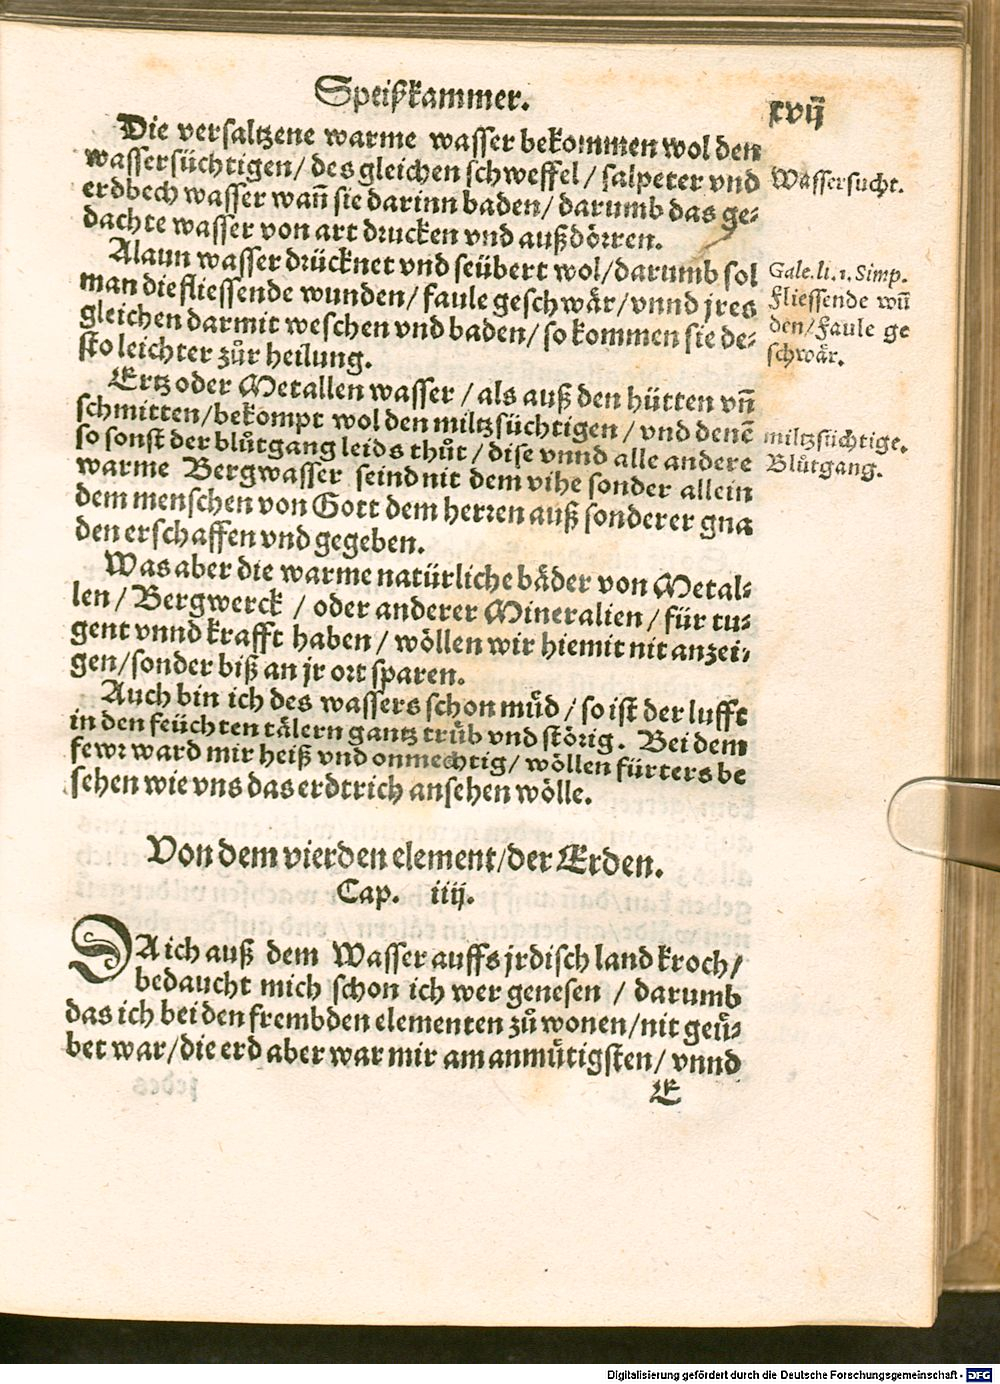 Speißkammer.
xvij
Die versaltzene warme wasser bekommen wol den
wassersüchtigen / des gleichen schweffel / salpeter vnd
erdbech wasser wañ sie darinn baden / darumb das ge⸗
dachte wasser von art drucken vnd außdörren.
Wassersucht.
Alaun wasser drücknet vnd seübert wol / darumb sol
man die fliessende wunden / faule geschwär / vnnd jres
gleichen darmit weschen vnd baden / so kommen sie de⸗
sto leichter zůr heilung.
Gale. li. 1. Simp.
Fliessende wũ
den / Faule ge
schwär.
Ertz oder Metallen wasser / als auß den hütten vñ
schmitten / bekompt wol den miltzsüchtigen / vnd denẽ
so sonst der blůtgang leids thůt / dise vnnd alle andere
warme Bergwasser seind nit dem vihe sonder allein
dem menschen von Gott dem herren auß sonderer gna
den erschaffen vnd gegeben.
miltzsüchtige.
Blůtgang.
Was aber die warme natürliche bäder von Metal⸗
len / Bergwerck / oder anderer Mineralien / für tu⸗
gent vnnd krafft haben / wöllen wir hiemit nit anzei⸗
gen / sonder biß an jr ort sparen.
Auch bin ich des wassers schon müd / so ist der lufft
in den feüchten tälern gantz trüb vnd störig. Bei dem
fewr ward mir heiß vnd onmechtig / wöllen fürters be
sehen wie vns das erdtrich ansehen wölle.
Von dem vierden element / der Erden.
Cap. iiij.
DA ich auß dem Wasser auffs jrdisch land kroch /
bedaucht mich schon ich wer genesen / darumb
das ich bei den frembden elementen zů wonen / nit geü⸗
bet war / die erd aber war mir am anmütigsten / vnnd
E
Digitalisierung gefördert durch die Deutsche Forschungsgemeinschaft - DFG